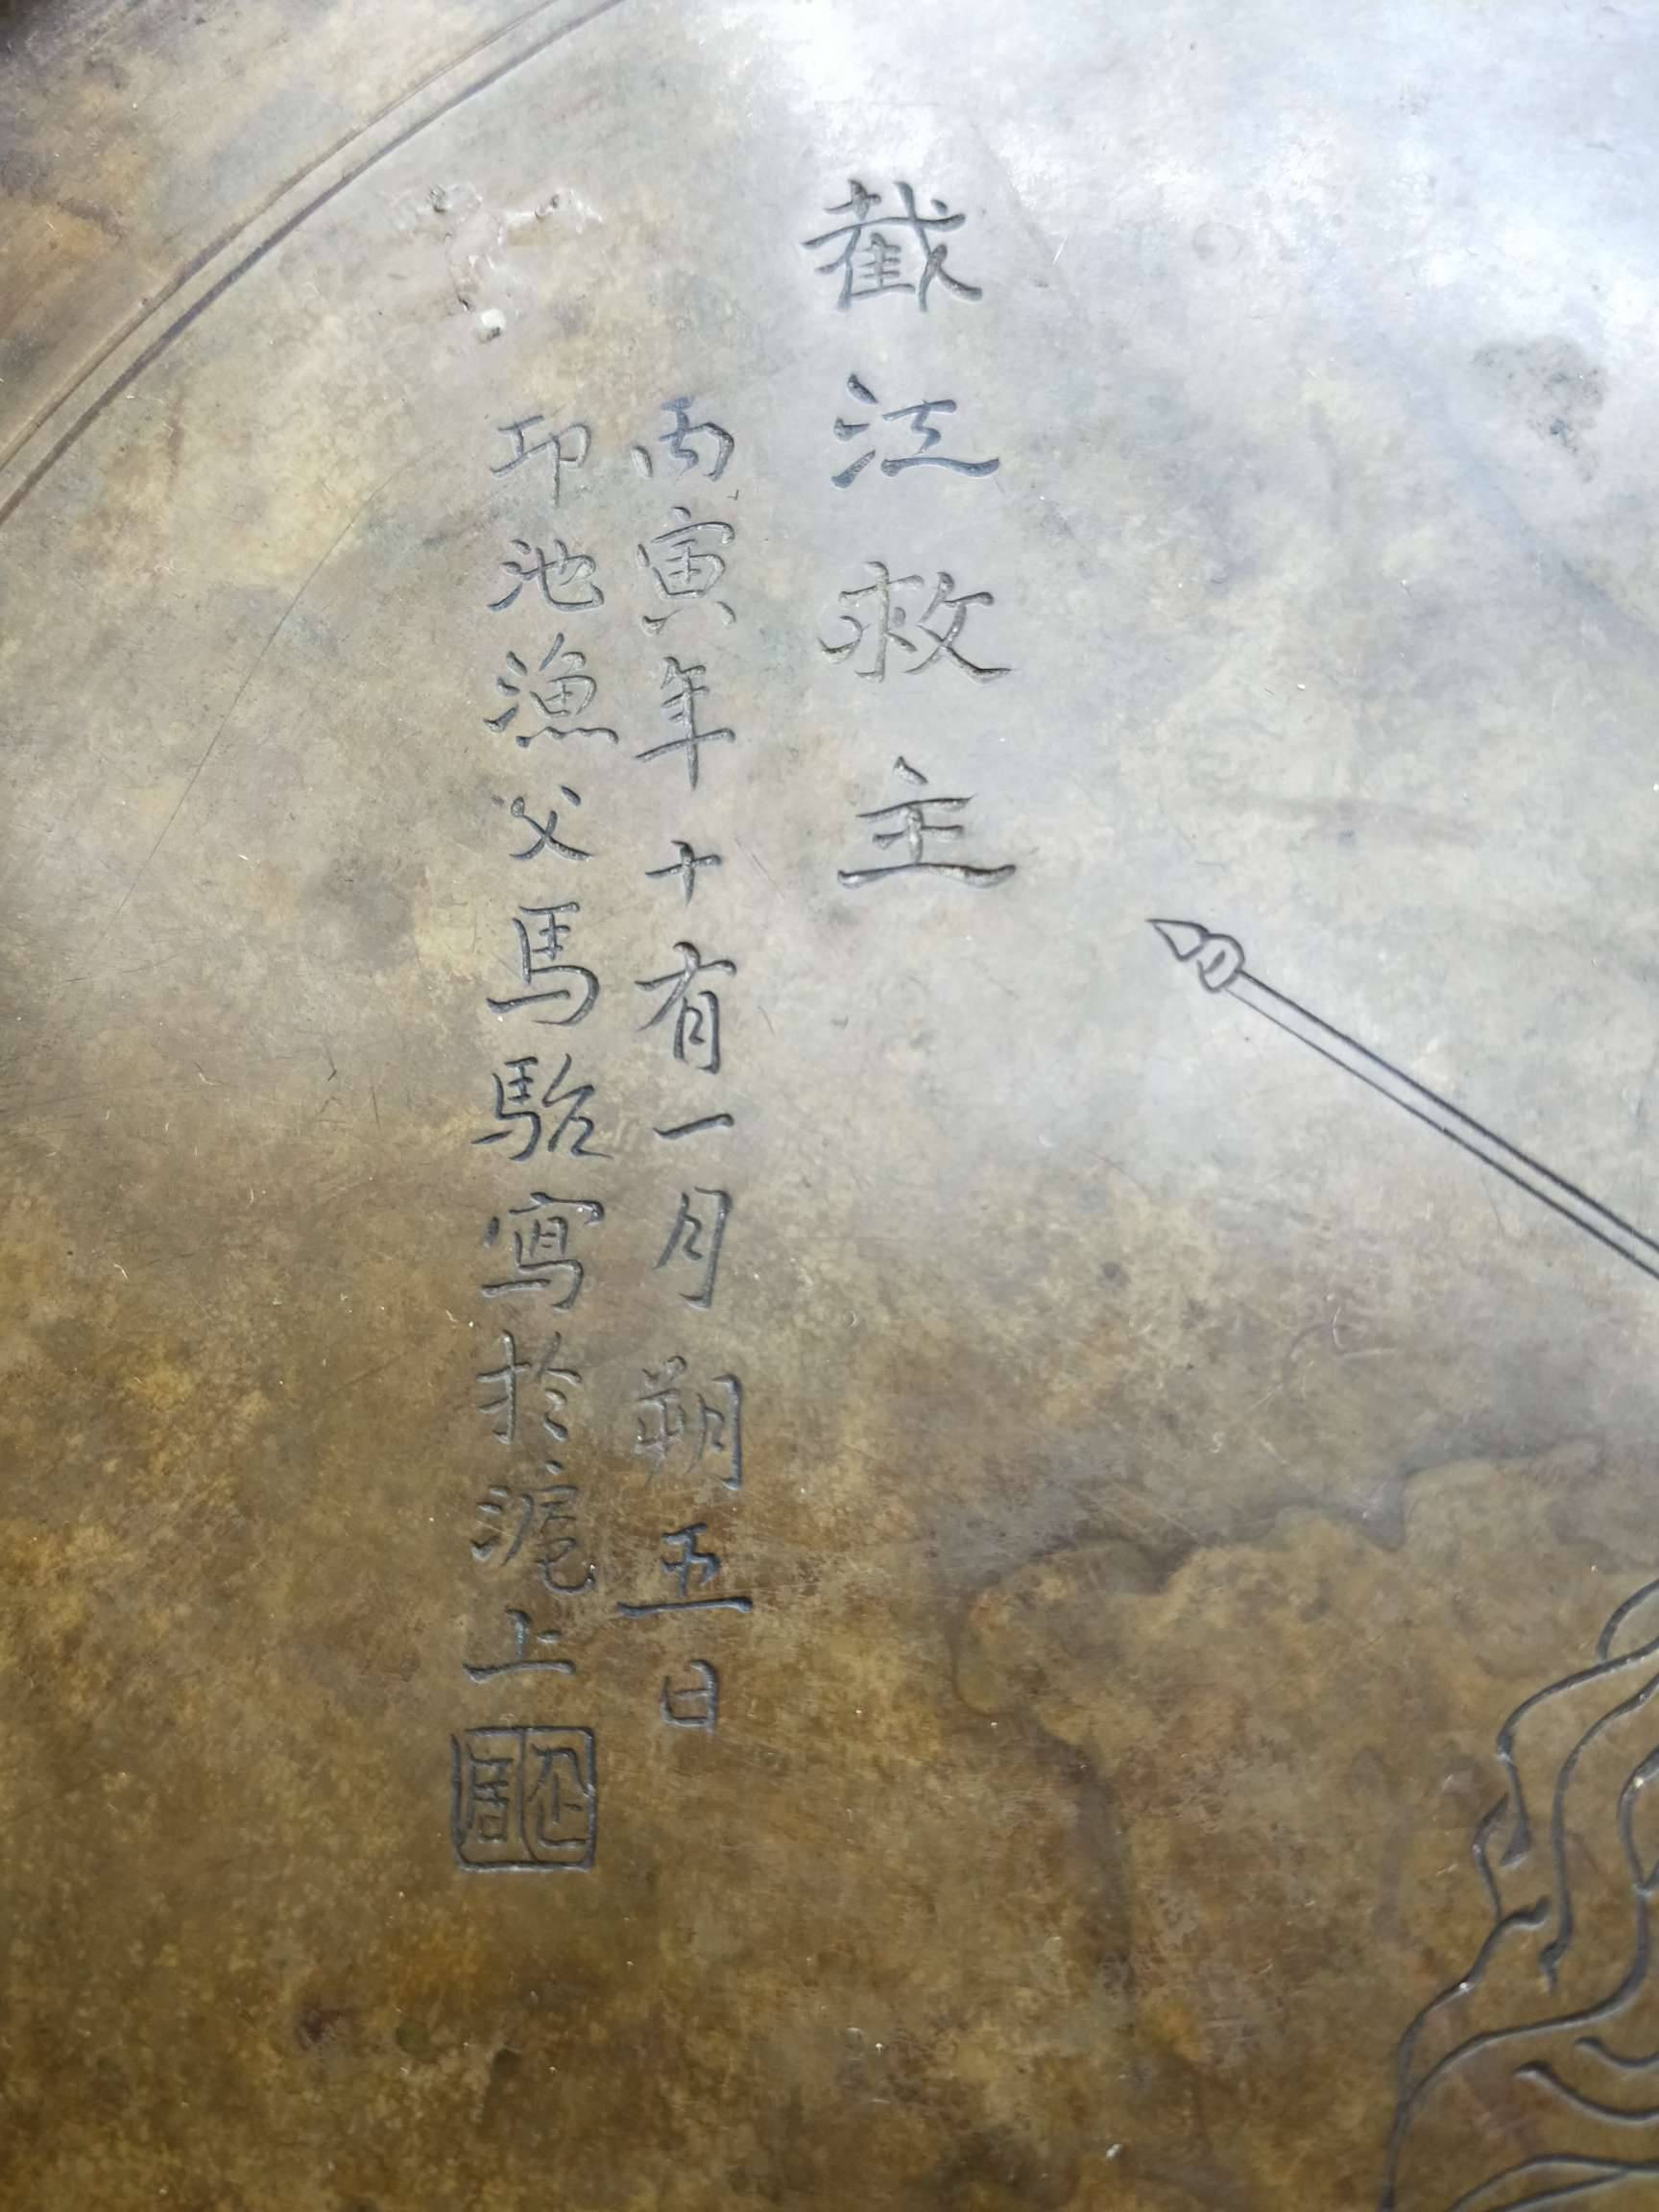 截江救主
丙寅年十有一月朔五日
邛池漁父馬駘寫於滬上